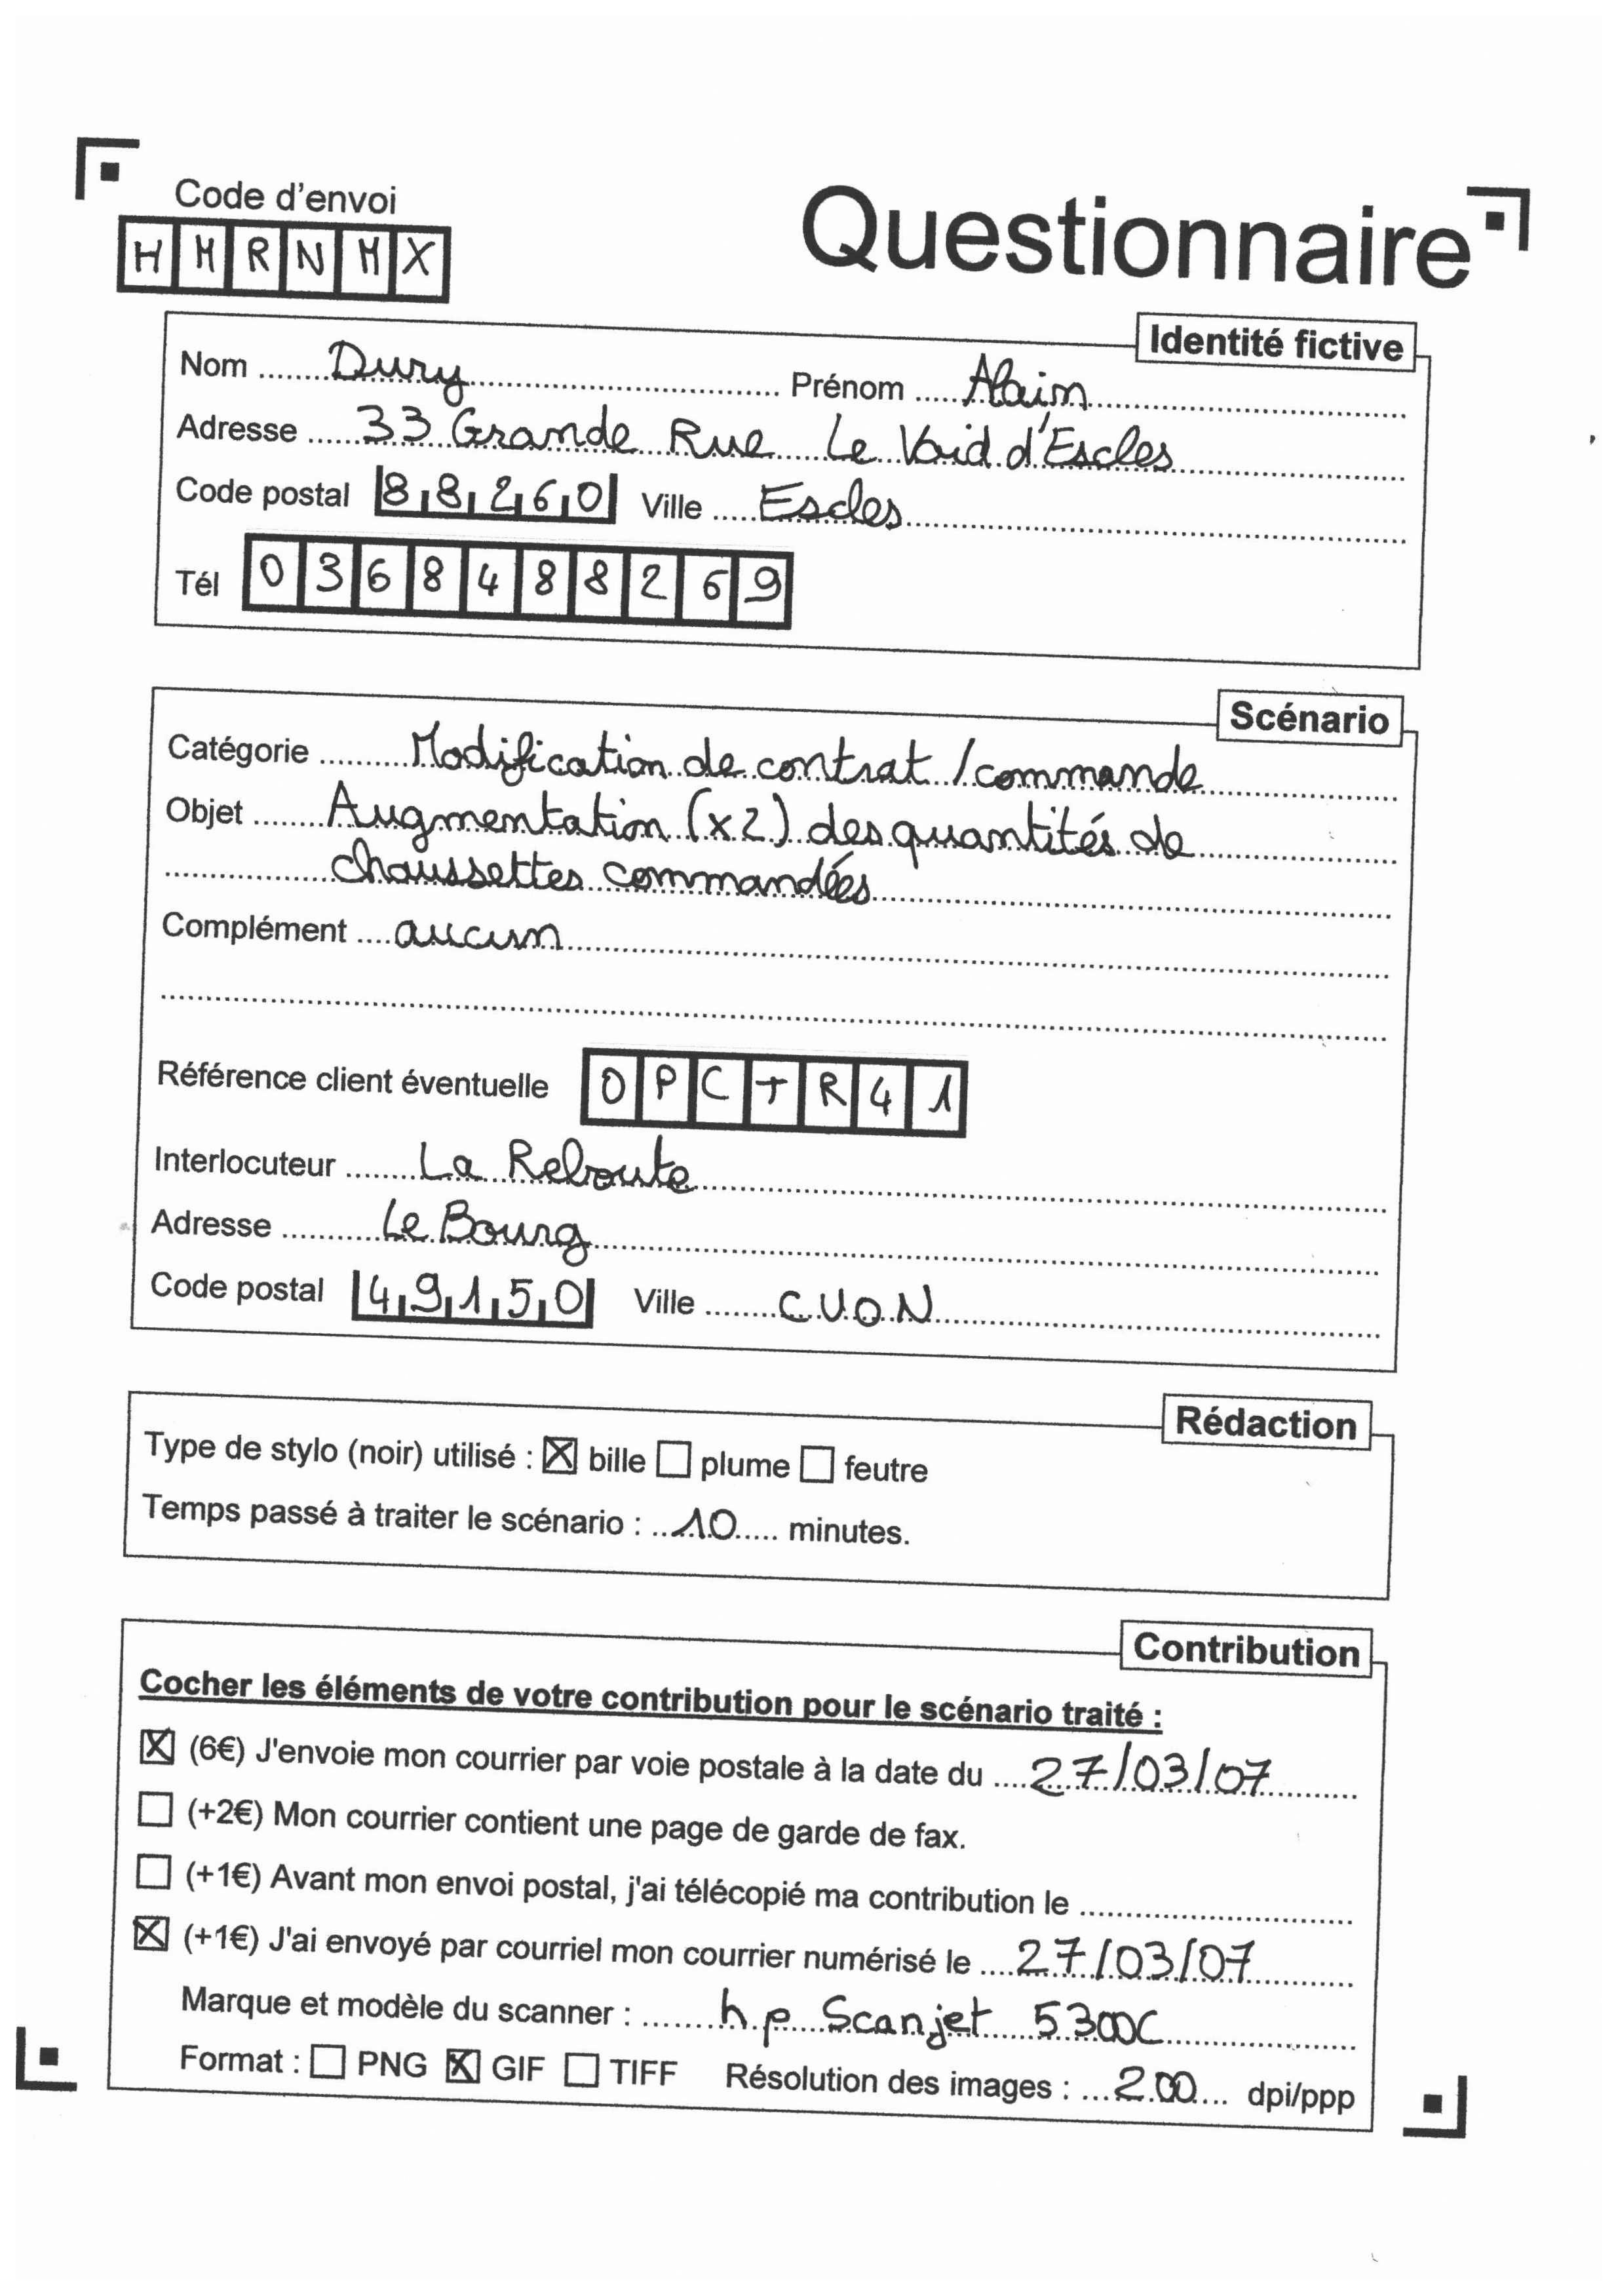 Code d'envoi
HMRNMX
Questionnaire
Identité fictive
Nom ........ Dury ........ Prénom ..... Alain .....
Adresse ..... 33 Grande Rue Le Void d'Escles .....
Code postal 88260 Ville ..... Escles .....
Tél 0368488269
Scénario
Catégorie ..... Modification de contrat / commande .....
Objet ..... Augmentation (x2) des quantités de .....
..... chaussettes commandées .....
Complément .... aucun .....
Référence client éventuelle 0PCTR41
Interlocuteur ..... La Reboute .....
Adresse ..... Le Bourg .....
Code postal 49150 Ville ..... CUON .....
Rédaction
Type de stylo (noir) utilisé : ☒ bille ☐ plume ☐ feutre
Temps passé à traiter le scénario : ..10..... minutes.
Contribution
Cocher les éléments de votre contribution pour le scénario traité :
☒ (6€) J'envoie mon courrier par voie postale à la date du .... 27/03/07 .....
☐ (+2€) Mon courrier contient une page de garde de fax.
☐ (+1€) Avant mon envoi postal, j'ai télécopié ma contribution le ..........
☒ (+1€) J'ai envoyé par courriel mon courrier numérisé le .... 27/03/07 .....
Marque et modèle du scanner : ..... hp Scanjet 5300C .....
Format : ☐ PNG ☒ GIF ☐ TIFF Résolution des images : ...200.... dpi/ppp